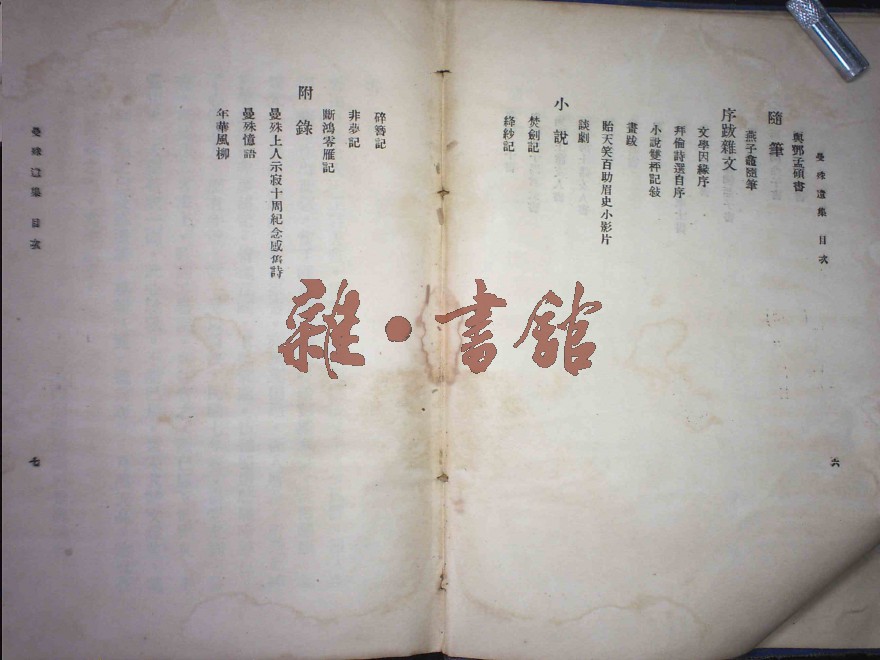 曼殊遺集 目次
與鄧孟碩書
隨筆
燕子龕隨筆
序跋雜文
文學因緣序
拜倫詩選自序
小說雙枰記敍
畫跋
貽天笑百助眉史小影片
談劇
小說
焚劍記
絳紗記
六
碎簪記
非夢記
斷鴻零雁記
附錄
曼殊上人示寂十周紀念感舊詩
曼殊憶語
年華風柳
曼殊遺集 目次
七
雜·書館